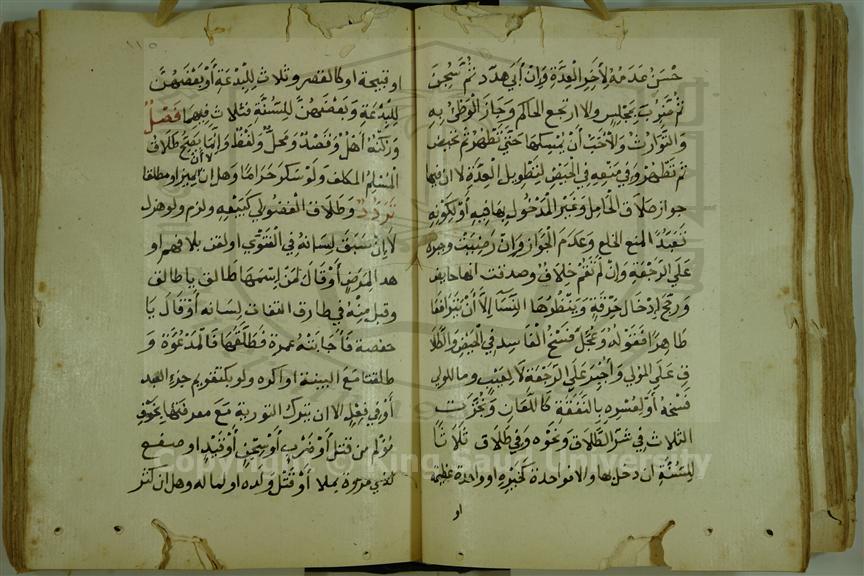 خسن عدمه لآخر العدة وان أبى هدد ثم سجن
ثم ضرب بمجلس والا ارتجع الحاكم وجاز الوطئ به
والتوارث والأحب أن يمسكها حتى تطهر ثم تحيض
ثم تطهر وفي منعه في الحيض لتطويل العدة لان فيها
جواز طلاق الحامل وغير المدخول بها فيه أو لكونه
تعبدا لمنع الخلع وعدم الجواز وان رضيت وجبره
على الرجعة وان لم تقم خلاف وصدقت انها حايض
ورجح ادخال خرقة وينظرها النسا إلا أن يترافعا
طاهرا فقوله وعجل فسخ الفاسد في الحيض والطلا
ق على المولي وأجبر على الرجعة لا لعيب وما للولي
فسخه أو لعسره بالنفقة كاللعان ونجزت
الثلاث في شر الطلاق ونحوه وفي طلاق ثلاثا
للسنة ان دخل بها والا فواحدة كخيره او واحدة عظيمة
او
١١٥
او قبيحة او كالقصر وثلاث للبدعة أو بعضهن
للبدعة وبعضهن للسنة فثلاث فيهما فصل
وركنه أهل وقصد ومحل ولفظ وإنما يصح طلاق
المسلم المكلف ولو سكر حراما وهل الا أن لا يميز او مطلقا
تردد وطلاق الفضولي كبيعه ولزم ولو هزل
لا إن سبق لسانه في الفتوى او لقن بلا فهم او
هذ المرض أو قال لمن اسمها طالق يا طالق
وقبل منه في طارق التفات لسانه أو قال يا
حفصة فأجابته عمرة فطلقها فالمدعوة و
طلقتا مع البينة او اكره ولو بكتقويم جزء العبد
أو في فعل الا ان يترك التورية مع معرفتها بخوف
مؤلم من قتل أو ضرب أو سجن أو قيد او صفع
لذي مروءة بملا أو قتل ولده او لماله وهل ان كثر
Copyright © King Saud University